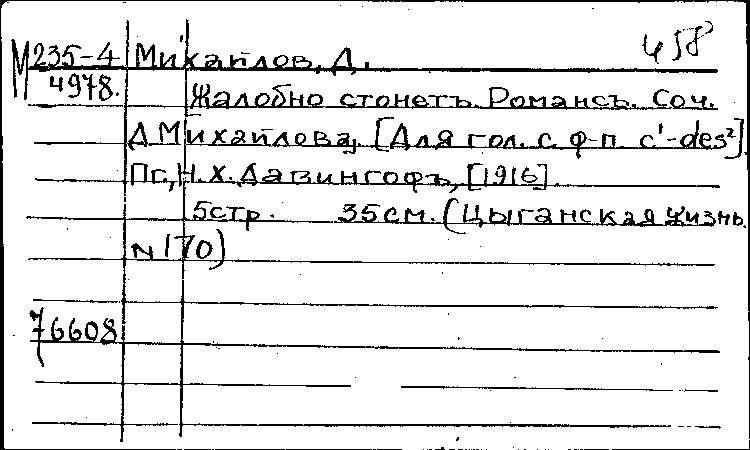 М 235-4 Михайлов, Д. 458
4978. Жалобно стонетъ. Романсъ. Соч.
Д. Михайлова, [Для гол. с ф-п. c'-des²].
Пг., Н. Х. Давингофъ, [1916].
5 стр. 35 см. (Цыганская жизнь.
N 170)
76608